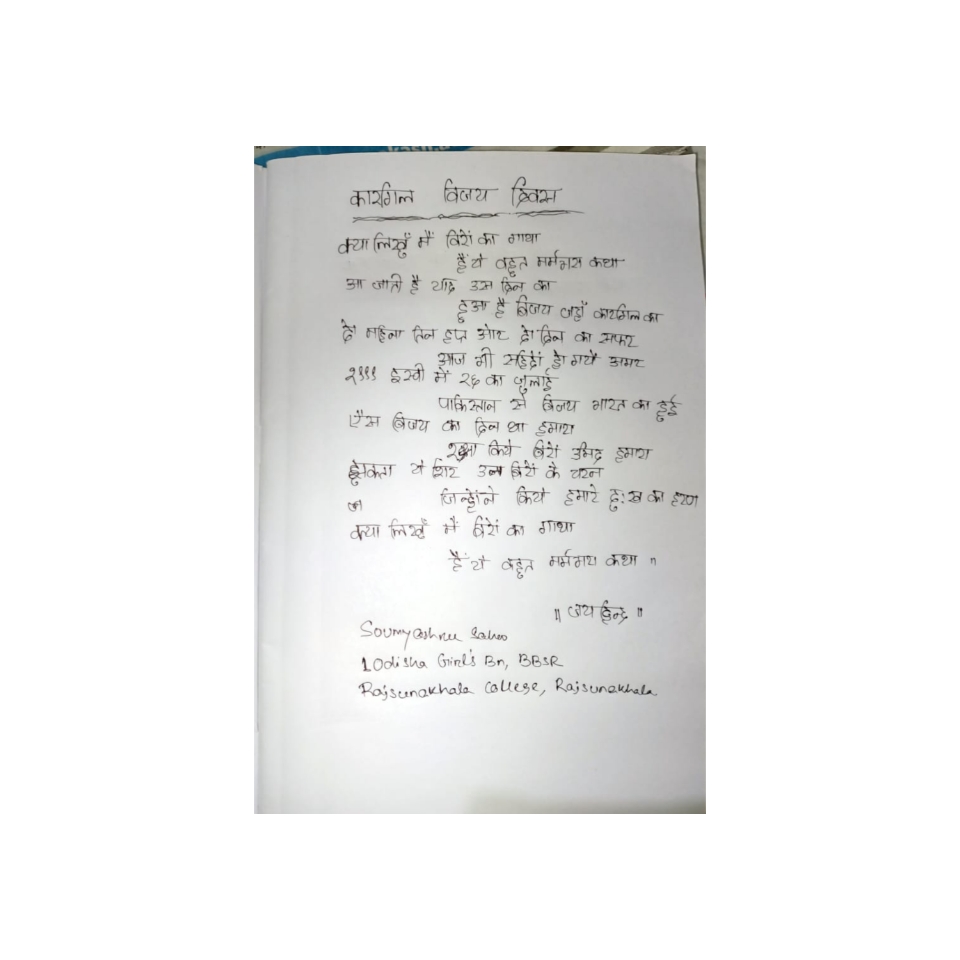 कारगिल विजय दिवस
क्या लिखुँ मैं विरों का गाथा
हैं ये बहुत मर्ममय कथा
आ जाती है याद उस दिन का
हुआ है विजय जहाँ कारगिल का
दो महिना तिन हप्त और दो दिन का सफर
आज भी सहिदों हो गये अमर
१९९९ इस्वी में २६ का जुलाई
पाकिस्तान से बिजय भारत का हुई
एैस बिजय का दिन था हमारा
किये बिरों हमारा
झुकता ये शिर उन बिरों के चरन
जिन्होंने किये हमारे दुःख का हरण
क्या लिखुँ मैं बिरों का गाथा
हैं ये बहुत मर्ममय कथा ॥
॥ जय हिन्द ॥
Soumyashree Sahoo
1 Odisha Girl's Bn, BBSR
Rajsunakhala College, Rajsunakhala